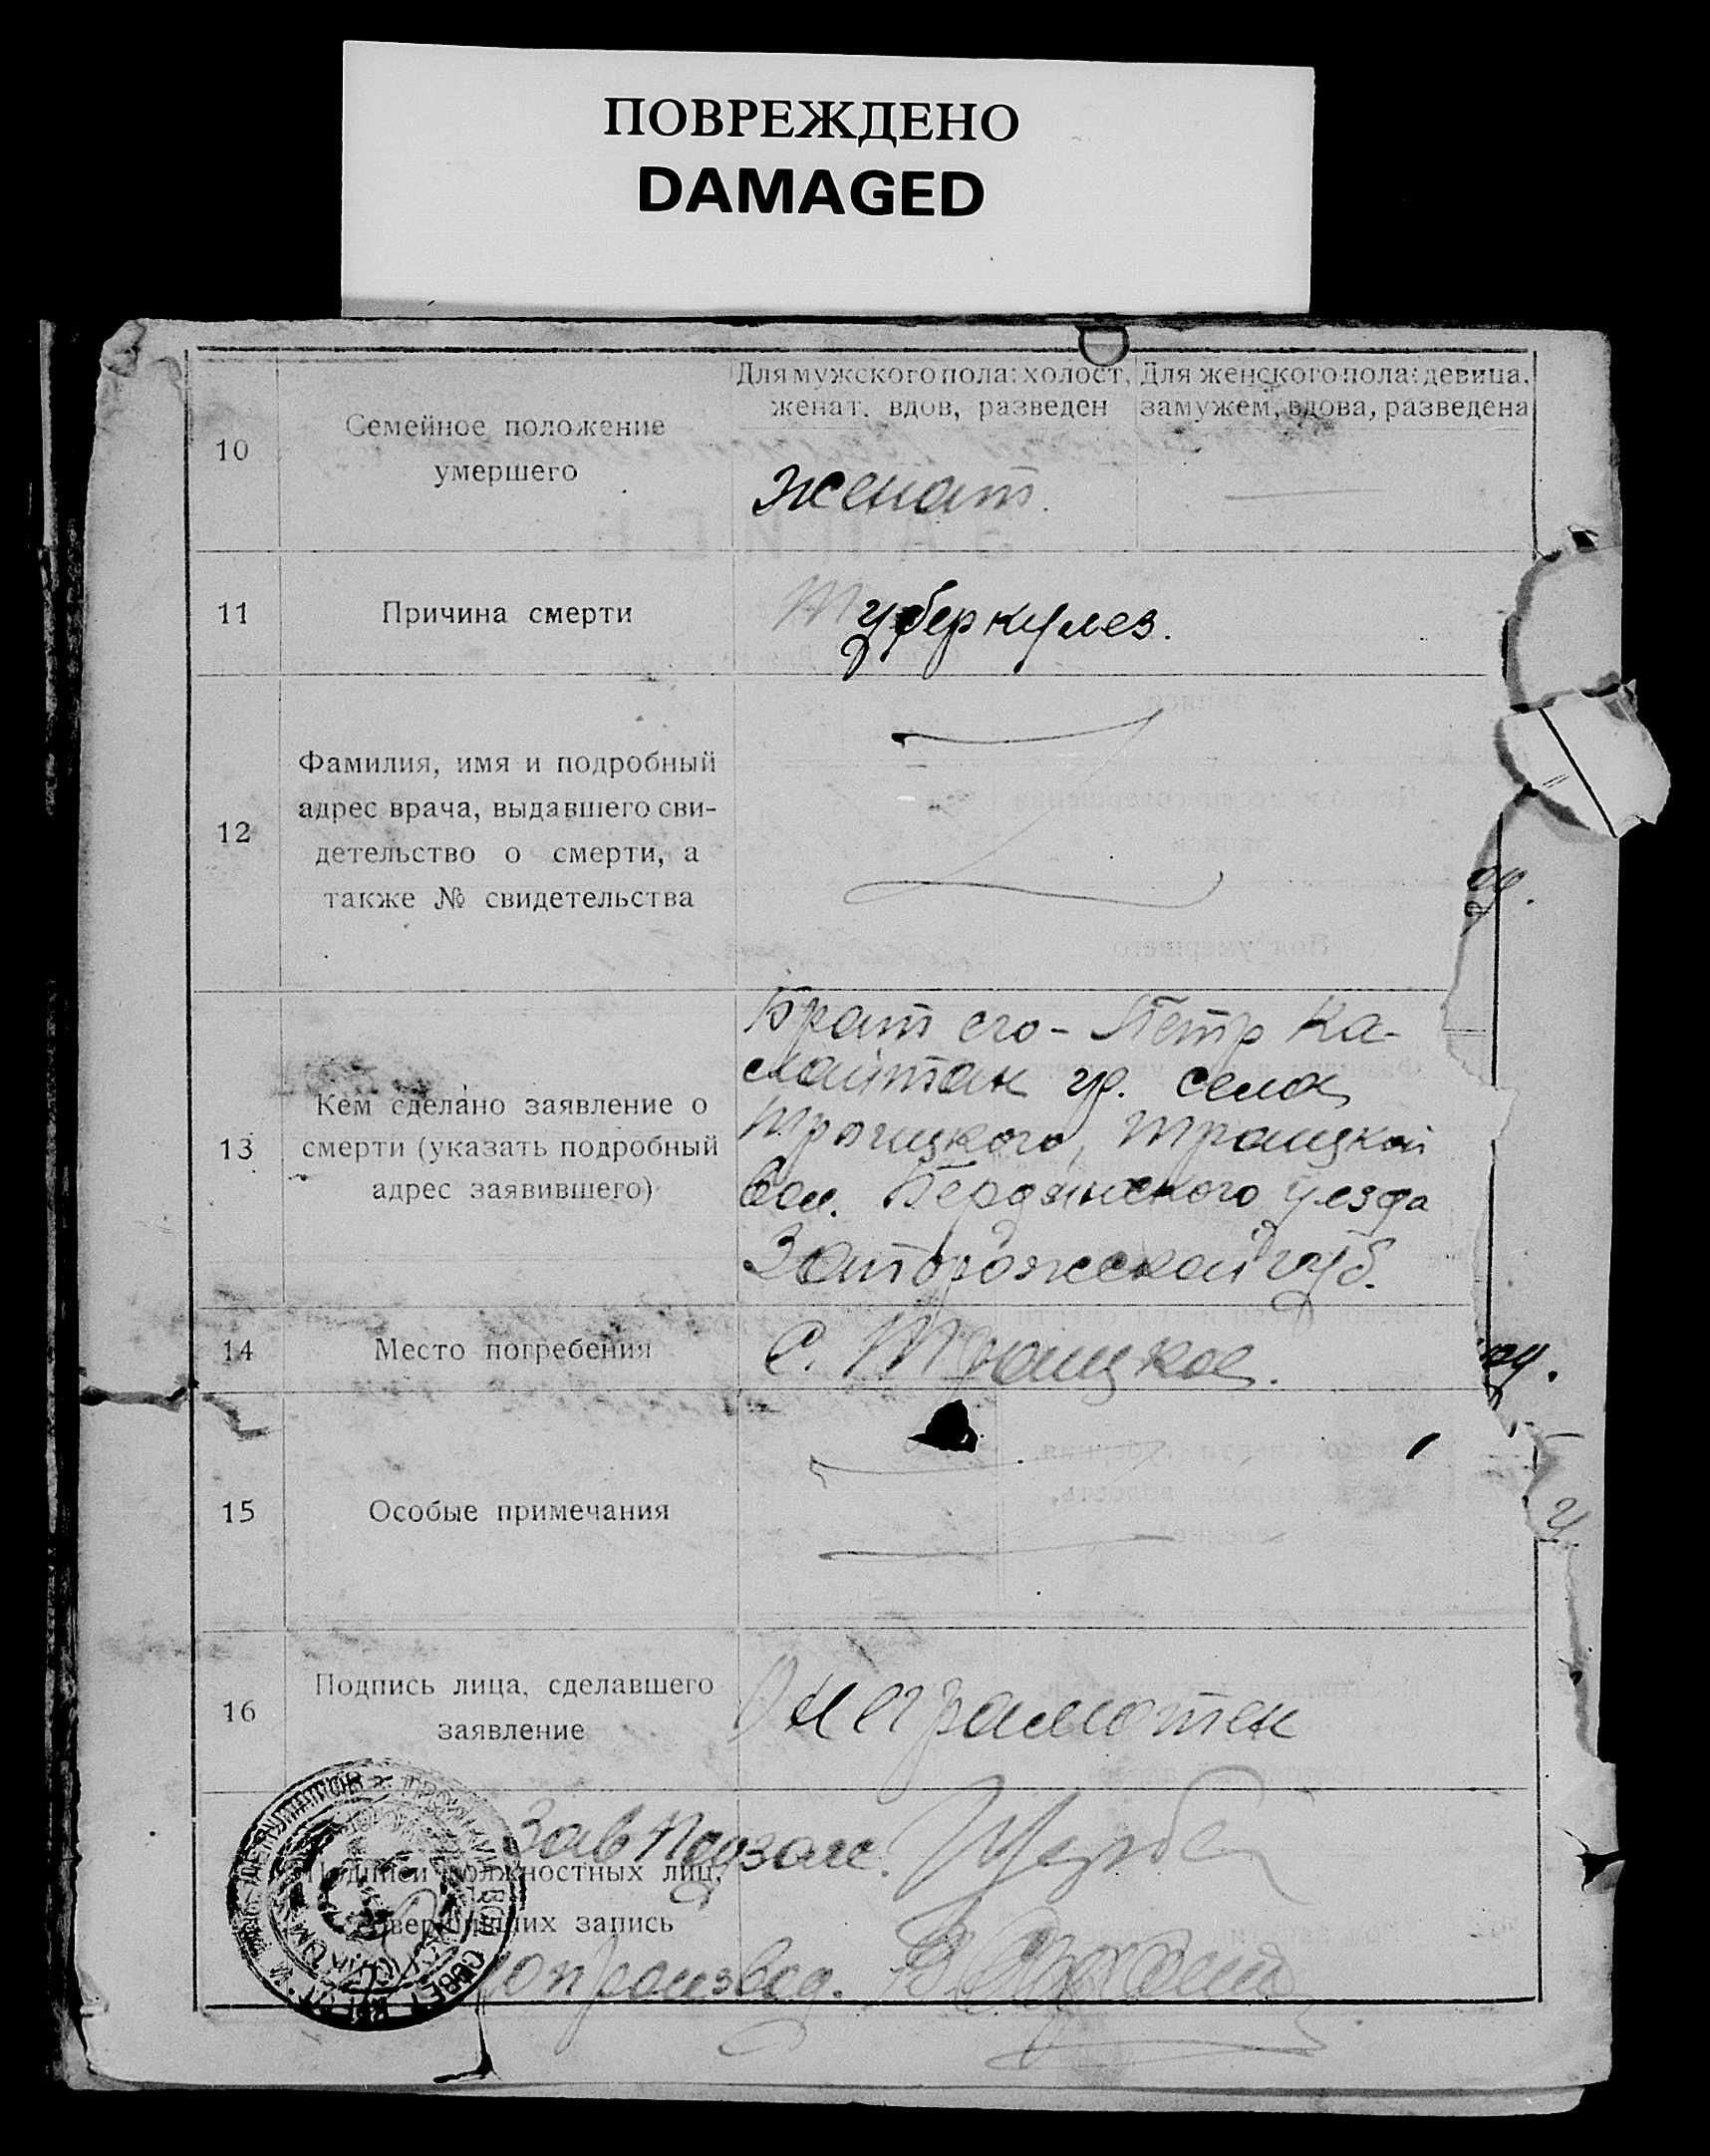 ПОВРЕЖДЕНО
DAMAGED
10
Семейное положение
умершего
Для мужского пола: холост,
женат, вдов, разведен
Для женского пола: девица,
замужем, вдова, разведена
женат.
11
Причина смерти
Туберкулез.
12
Фамилия, имя и подробный
адрес врача, выдавшего сви-
детельство о смерти, а
также № свидетельства
13
Кем сделано заявление о
смерти (указать подробный
адрес заявившего)
Брат его - Петр Ка-
гр. села
Троицкого, Троицкой
вол. Бердянского уезда
Запорожской губ.
14
Место погребения
С. Троицкое.
15
Особые примечания
16
Подпись лица, сделавшего
заявление
неграмотен
Зав
Подписи должностных лиц,
совершивших запись